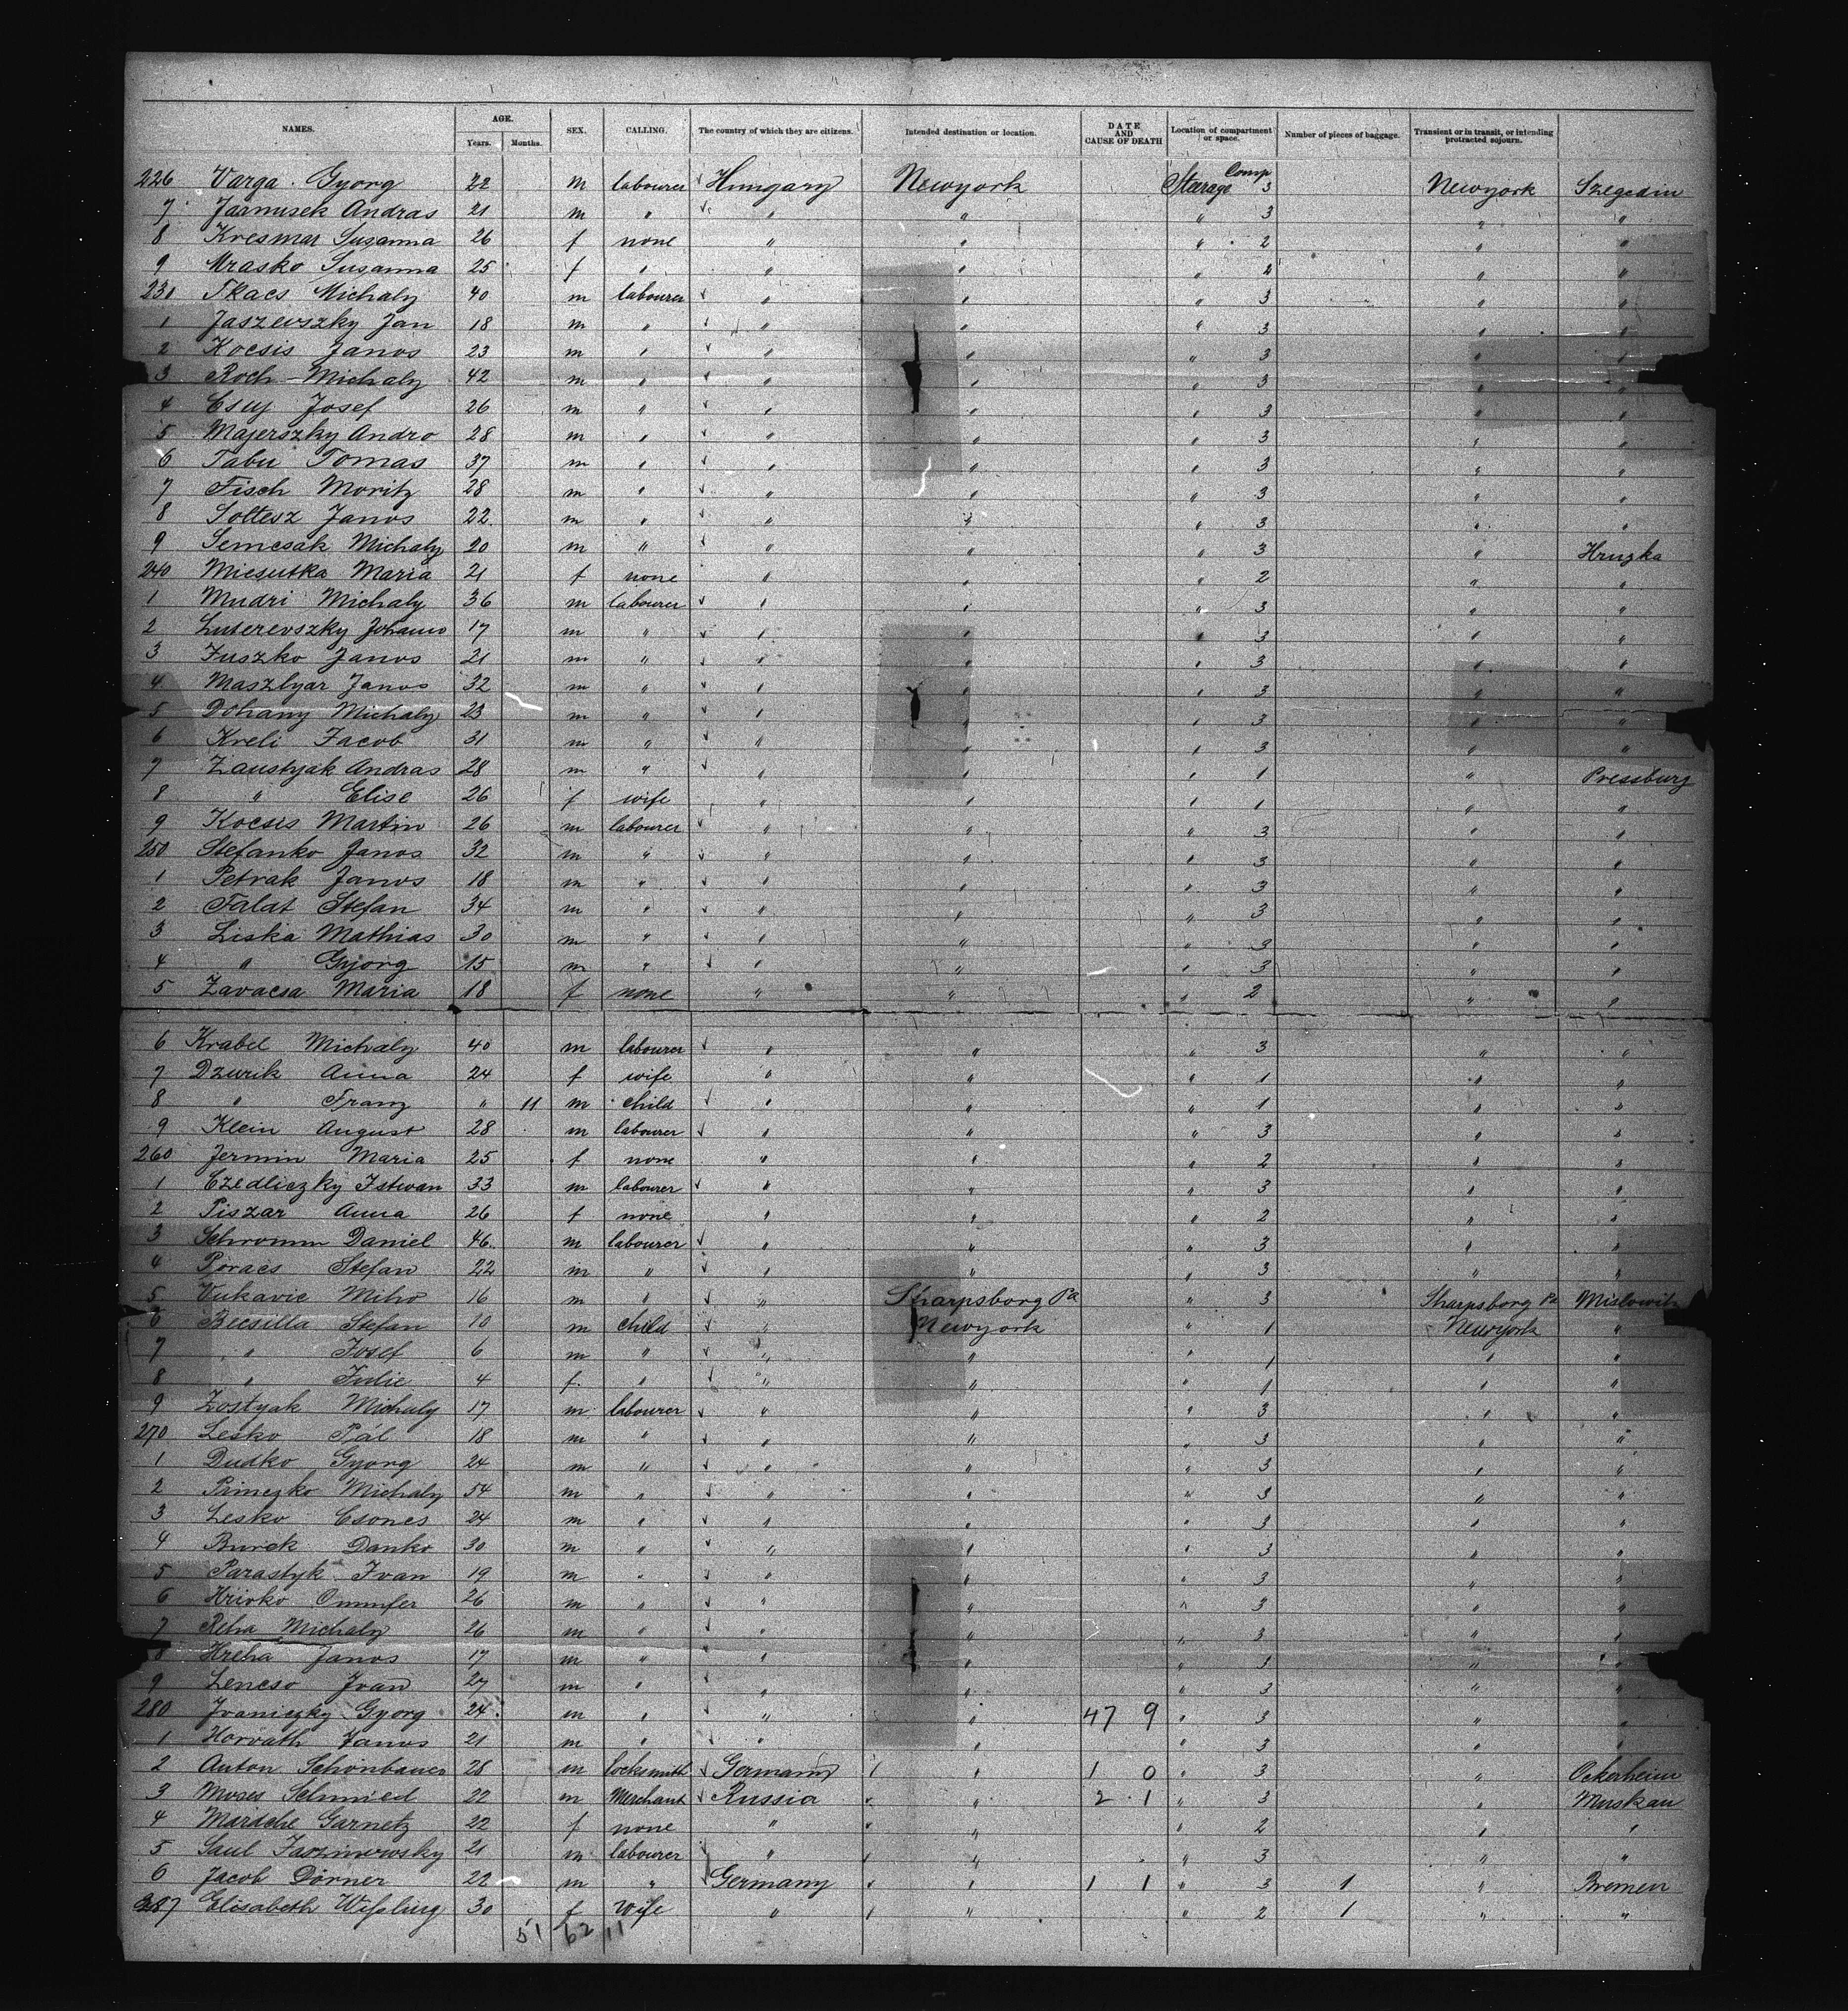 NAMES. AGE. Years. Months. SEX. CALLING. The country of which they are citizens. Intended destination or location. DATE AND CAUSE OF DEATH Location of compartment or space. Number of pieces of baggage. Transient or in transit, or intending protracted sojourn.
226 Varga Gyorg 22 m labourer Hungary Newyork Steerage Comp 3 Newyork Szegedin
7 Jarnusek Andras 21 m " " " " 3 " "
8 Kresmar Susanna 26 f none " " " 2 " "
9 Mrasko Susanna 25 f " " " " 2 " "
230 Tkacs Michaly 40 m labourer " " " 3 " "
1 Jaszevszky Jan 18 m " " " " 3 " "
2 Kocsis Janos 23 m " " " " 3 " "
3 Roch Michaly 42 m " " " " 3 " "
4 Csuj Josef 26 m " " " " 3 " "
5 Majerszky Andro 28 m " " " " 3 " "
6 Tabu Tomas 37 m " " " " 3 " "
7 Fisch Moritz 28 m " " " " 3 " "
8 Soltesz Janos 22 m " " " " 3 " "
9 Semcsak Michaly 20 m " " " " 3 " Hruzka
240 Micsutka Maria 21 f none " " " 2 " "
1 Mudri Michaly 36 m labourer " " " 3 " "
2 Luterevszky Johann 17 m " " " " 3 " "
3 Juszko Janos 21 m " " " " 3 " "
4 Maszlyar Janos 32 m " " " " 3 " "
5 Dohany Michaly 23 m " " " " 3 " "
6 Kreli Jacob 31 m " " " " 3 " "
7 Zaustyak Andras 28 m " " " " 1 " Pressburg
8 " Elise 26 f wife " " " 1 " "
9 Kocsis Martin 26 m labourer " " " 3 " "
250 Stefanko Janos 32 m " " " " 3 " "
1 Petrak Janos 18 m " " " " 3 " "
2 Falat Stefan 34 m " " " " 3 " "
3 Liska Mathias 30 m " " " " 3 " "
4 " Gyorg 15 m " " " " 3 " "
5 Zavacsa Maria 18 f none " " " 2 " "
6 Krabel Michaly 40 m labourer " " " 3 " "
7 Dzurik Anna 24 f wife " " " 1 " "
8 " Franz " 11 m child " " " 1 " "
9 Klein August 28 m labourer " " " 3 " "
260 Jermin Maria 25 f none " " " 2 " "
1 Czedliczky Istwan 33 m labourer " " " 3 " "
2 Piszar Anna 26 f none " " " 2 " "
3 Schromm Daniel 46 m labourer " " " 3 " "
4 Poracs Stefan 22 m " " " " 3 " "
5 Vukavic Miho 16 m " " Sharpsborg Pa " 3 Sharpsborg Pa Mislowitz
6 Becsilla Stefan 10 m child " Newyork " 1 Newyork "
7 " Josef 6 m " " " " 1 " "
8 " Julie 4 f " " " " 1 " "
9 Zostyak Michaly 17 m labourer " " " 3 " "
270 Lesko Pal 18 m " " " " 3 " "
1 Dudko Gyorg 24 m " " " " 3 " "
2 Primezko Michaly 54 m " " " " 3 " "
3 Lesko Csones 24 m " " " " 3 " "
4 Burek Danko 30 m " " " " 3 " "
5 Parastyk Ivan 19 m " " " " 3 " "
6 Hrivko 26 m " " " " 3 " "
7 Reha Michaly 26 m " " " " 3 " "
8 Hreha Janos 17 m " " " " 3 " "
9 Lencso Ivan 27 m " " " " 3 " "
280 Ivaniczky Gyorg 24 m " " " 47 9 " 3 " "
1 Horvath Janos 21 m " " " " 3 " "
2 Anton Schönbauer 28 m locksmith Germany " 1 0 " 3 " Ockerheim
3 Moses Schmied 22 m Merchant Russia " 2 1 " 3 " Muskau
4 Marache Garnetz 22 f none " " " 2 " "
5 Saul Jaszinowsky 21 m labourer " " " 3 " "
6 Jacob Dörner 22 m " Germany " 1 1 " 3 1 " Bremen
287 Elisabeth Wißling 30 f Wife " " " 2 1 " "
51 62 11